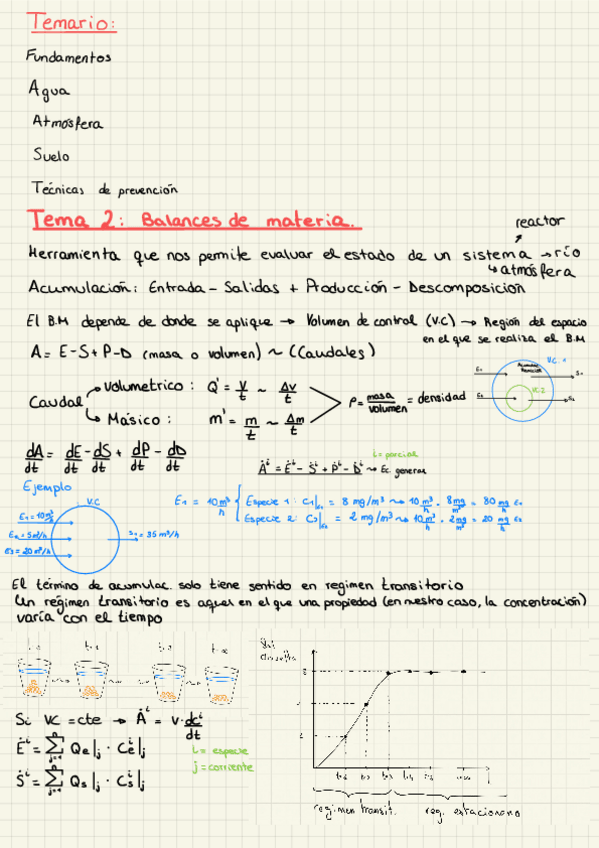 Temario:
Fundamentos
Agua
Atmósfera
Suelo
Técnicas de prevención
Tema 2: Balances de materia.
reactor
Herramienta que nos permite evaluar el estado de un sistema → río
↳ atmósfera
Acumulación: Entrada - Salidas + Producción - Descomposición
El B.M depende de donde se aplique → Volumen de control (V.C) → Región del espacio
en el que se realiza el B.M
A = E - S + P - D (masa o volumen) ~ (Caudales)
V.C. 1
V.C. 2
Caudal
Volumétrico : Q' = V/t ~ ΔV/t
Másico : m' = m/t ~ Δm/t
ρ = masa/volumen = densidad
dA/dt = dE/dt - dS/dt + dP/dt - dD/dt
i = parcial
Ȧⁱ = Ėⁱ - Ṡⁱ + Ṗⁱ - Ḋⁱ ~ Ec. general
Ejemplo
V.C
E₁ = 10 m³/h
E₂ = 5 m³/h
E₃ = 20 m³/h
S₁ = 35 m³/h
E₁ = 10 m³/h
Especie 1: C₁|E₁ = 8 mg/m³ → 10 m³/h · 8 mg/m³ = 80 mg/h E₁
Especie 2: C₂|E₁ = 2 mg/m³ → 10 m³/h · 2 mg/m³ = 20 mg/h E₁
El término de acumulac. solo tiene sentido en regimen transitorio
Un régimen transitorio es aquel en el que una propiedad (en nuestro caso, la concentración)
varía con el tiempo
Si VC = cte → Ȧⁱ = V · dcⁱ/dt
Ėⁱ = Σ Qe|j · Ceⁱ|j
i = especie
j = corriente
Ṡⁱ = Σ Qs|j · Csⁱ|j
regimen transit.
reg. estacionario